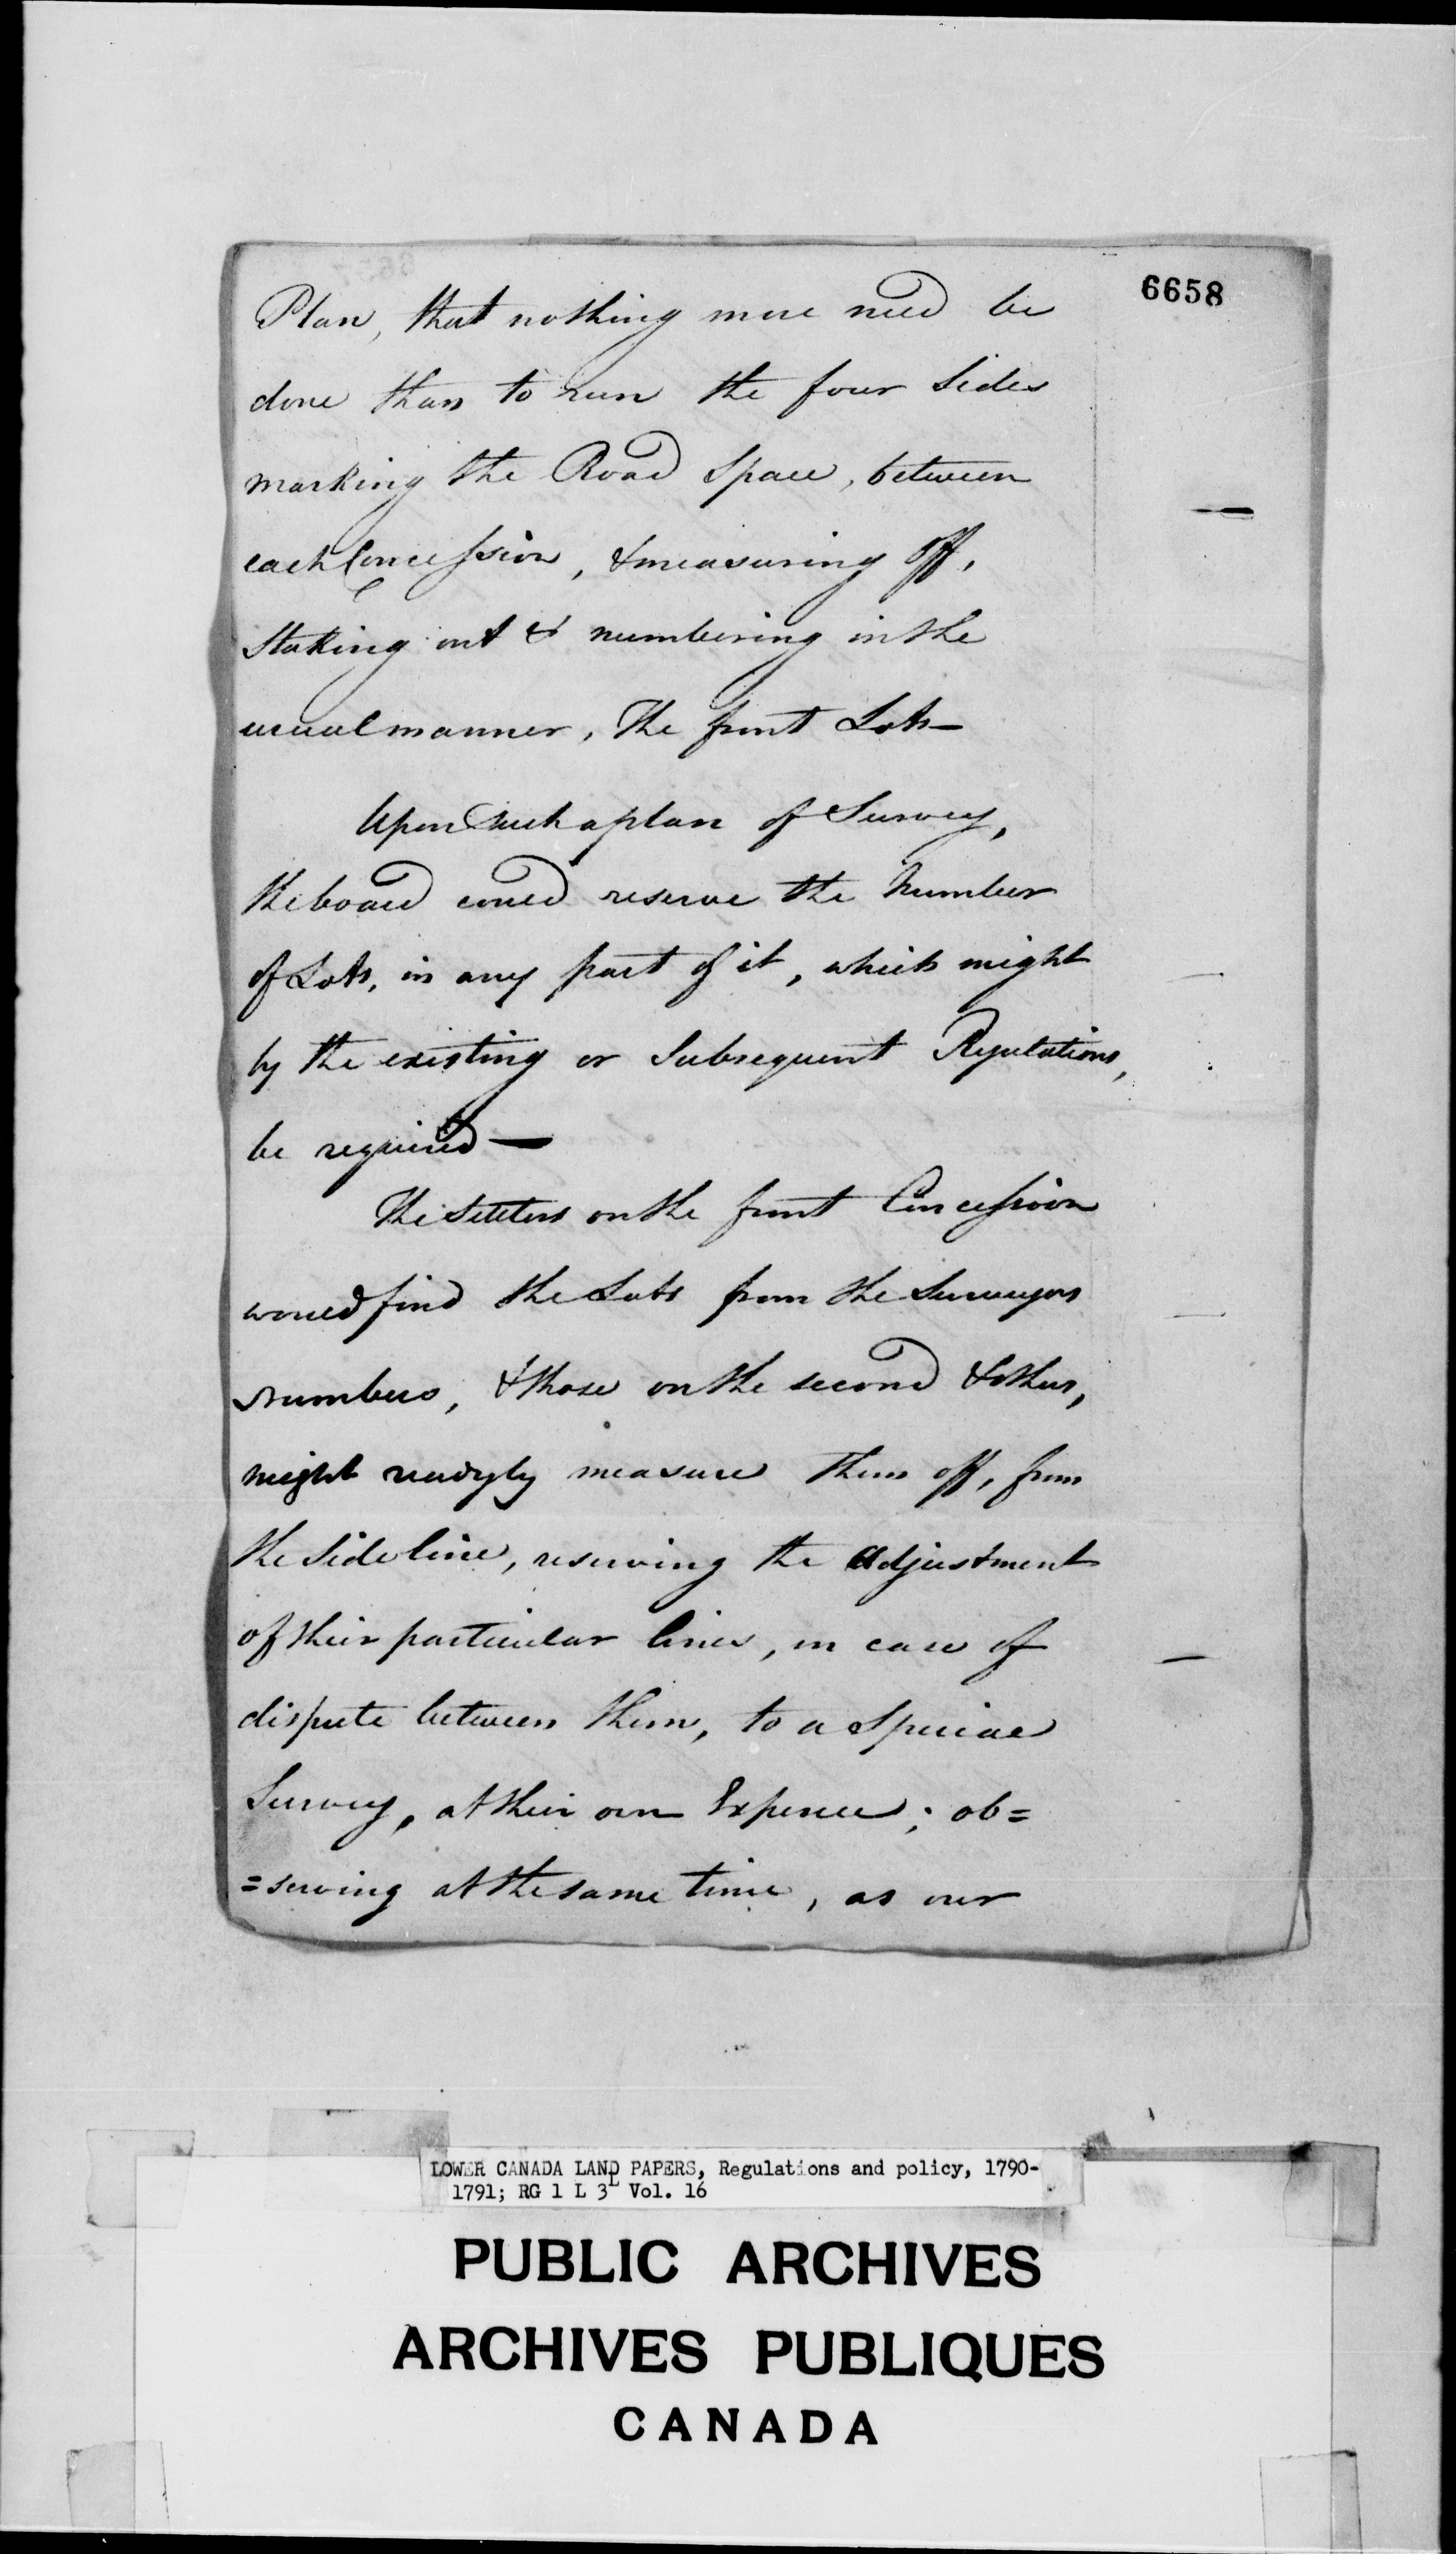 6658
Plan, that nothing more need be
done than to run the four Sides
marking the Road Space, between
each Concession, & measuring off,
Staking out & numbering in the
usual manner, The front Lots—
Upon such a plan of Survey,
the board could reserve the Number
of Lots, in any part of it, which might
by the existing or Subsequent Regulations,
be required —
The Settlers on the front Concession
would find the Lots from the Surveyors
numbers, & those on the second & others,
might readyly measure them off, from
the Side line, reserving the Adjustment
of their particular lines, in case of
dispute between them, to a Special
Survey, at their own Expence; ob=
=serving at the same time, as our
LOWER CANADA LAND PAPERS, Regulations and policy, 1790-
1791; RG 1 L 3L Vol. 16
PUBLIC ARCHIVES
ARCHIVES PUBLIQUES
CANADA